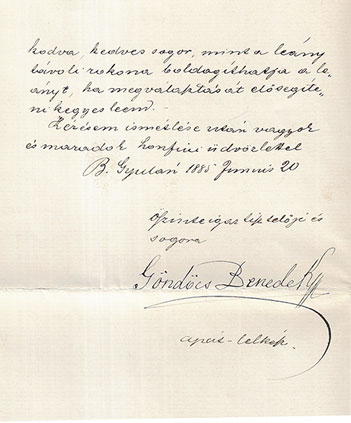 kodva, kedves sogor, mint a leány
távoli rokona boldogíthatja a le-
ányt, ha megválaptását elősegíte-
ni kegyes leem. –
Kérésem ismétlése után vagyok
és maradok honfiúi üdvözlettel
B. Gyulán 1885 Junius 20
őszinte igaz tisztelője és
sogora
Göndöcs Benedek
apát-lelkész.